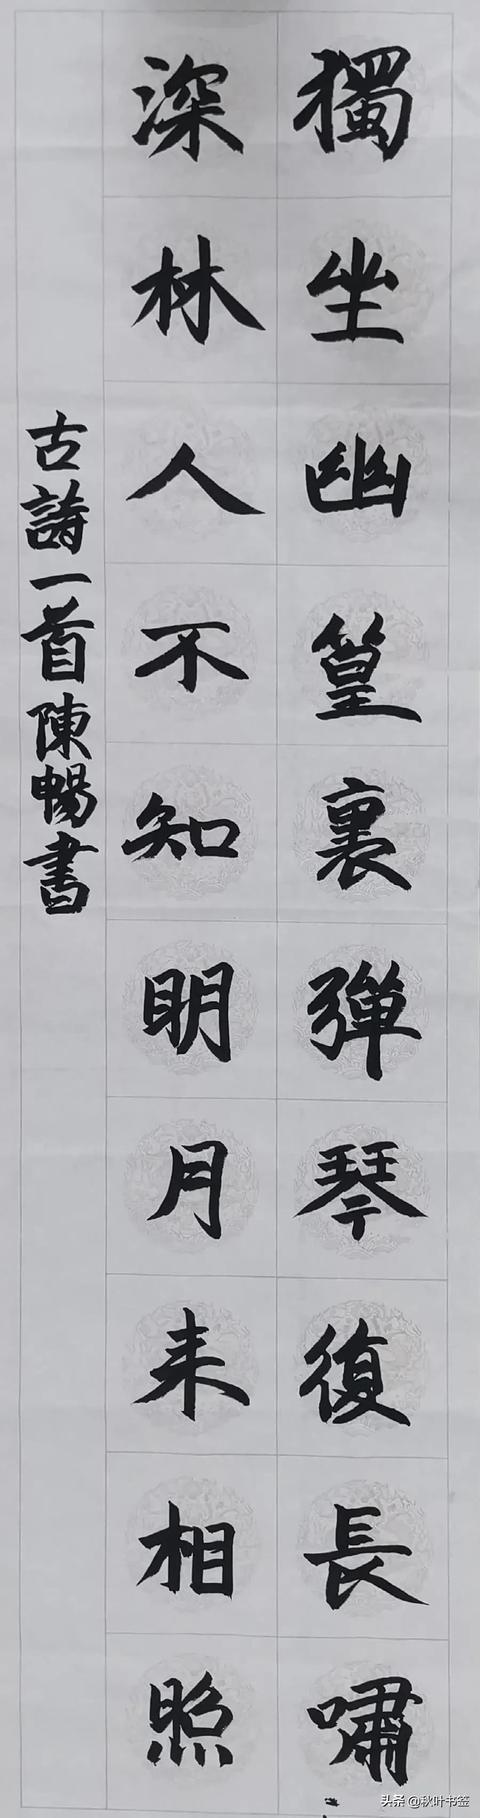 獨坐幽篁裏彈琴復長嘯
深林人不知明月来相照
古詩一首陳暢書
头条 @秋叶书签